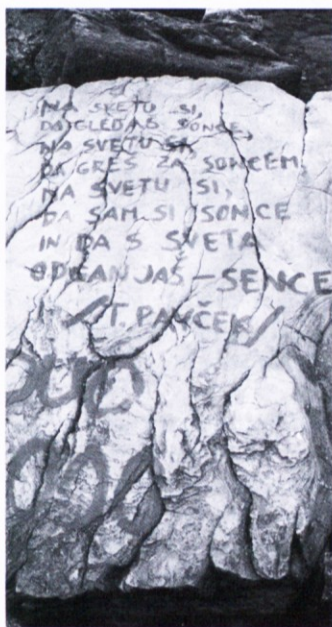 NA SVETU SI,
DA GLEDAŠ SONCE,
NA SVETU SI,
DA GREŠ ZA SONCEM
NA SVETU SI,
DA SAM SI SONCE
IN DA S SVETA
ODGANJAŠ - SENCE
/T. PAVČEK/